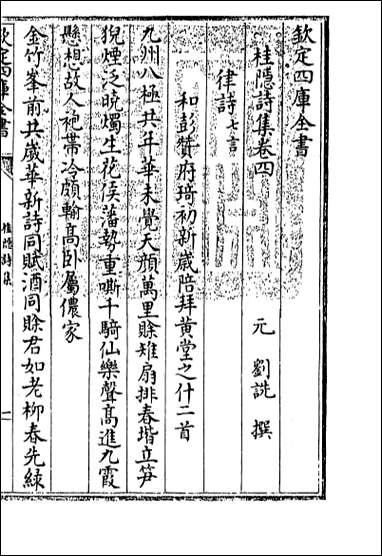 欽定四庫全書
桂隱詩集卷四
元　劉詵　撰
律詩七言
和彭贊府琦初新歲陪拜黃堂之什二首
九州八極共年華未覺天顔萬里賖雉扇排春堦立笋
猊煙泛晩燭生花侯藩勢重嘶千騎仙樂聲高進九霞
懸想故人袍帶冷頗輸高卧屬儂家
金竹峯前共歲華新詩同賦酒同賖君如老柳春先綠
欽定四庫全書
桂隱詩集
一